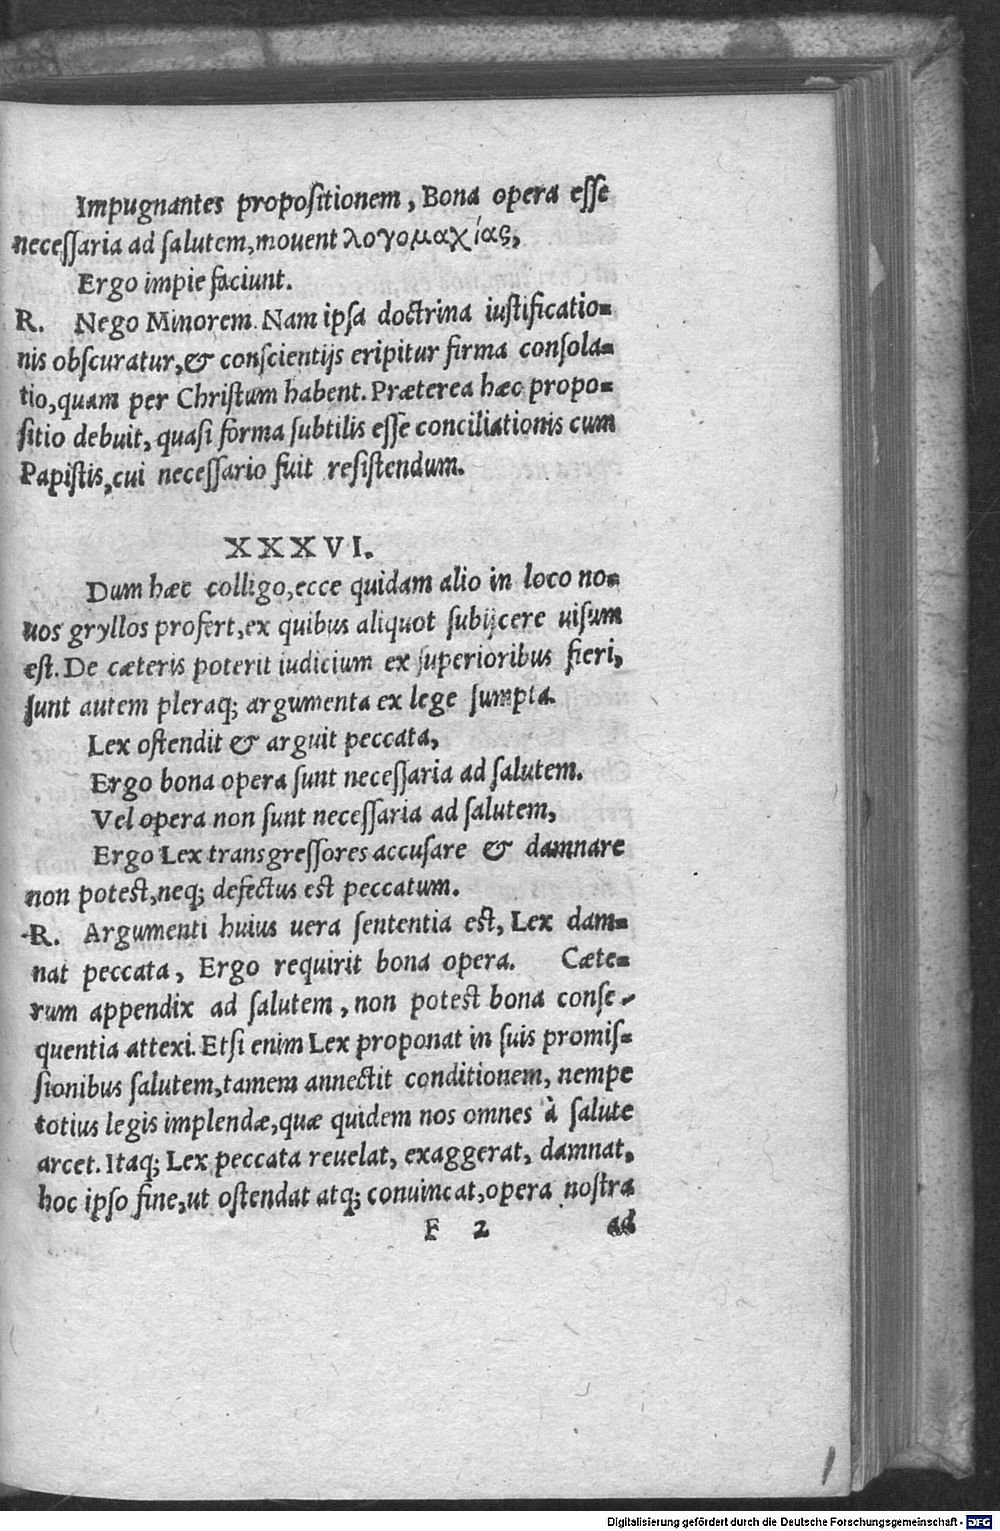 Impugnantes propoſitionem, Bona opera eſſe
neceſſaria ad ſalutem, mouent λογομαχίας,
Ergo impie faciunt.
R. Nego Minorem. Nam ipſa doctrina iuſtificatio-
nis obſcuratur, & conſcientijs eripitur firma conſola-
tio, quam per Chriſtum habent. Præterea hæc propo-
ſitio debuit, quaſi forma ſubtilis eſſe conciliationis cum
Papiſtis, cui neceſſario fuit reſiſtendum.
XXXVI.
Dum hæc colligo, ecce quidam alio in loco no-
uos gryllos profert, ex quibus aliquot ſubijcere uiſum
eſt. De cæteris poterit iudicium ex ſuperioribus fieri,
ſunt autem pleraq; argumenta ex lege ſumpta.
Lex oſtendit & arguit peccata,
Ergo bona opera ſunt neceſſaria ad ſalutem.
Vel opera non ſunt neceſſaria ad ſalutem,
Ergo Lex transgreſſores accuſare & damnare
non poteſt, neq; defectus eſt peccatum.
R. Argumenti huius uera ſententia eſt, Lex dam-
nat peccata, Ergo requirit bona opera. Cæte-
rum appendix ad ſalutem, non poteſt bona conſe-
quentia attexi. Etſi enim Lex proponat in ſuis promiſ-
ſionibus ſalutem, tamen annectit conditionem, nempe
totius legis implendæ, quæ quidem nos omnes à ſalute
arcet. Itaq; Lex peccata reuelat, exaggerat, damnat,
hoc ipſo fine, ut oſtendat atq; conuincat, opera noſtra
F 2 ad
Digitalisierung gefördert durch die Deutsche Forschungsgemeinschaft - DFG